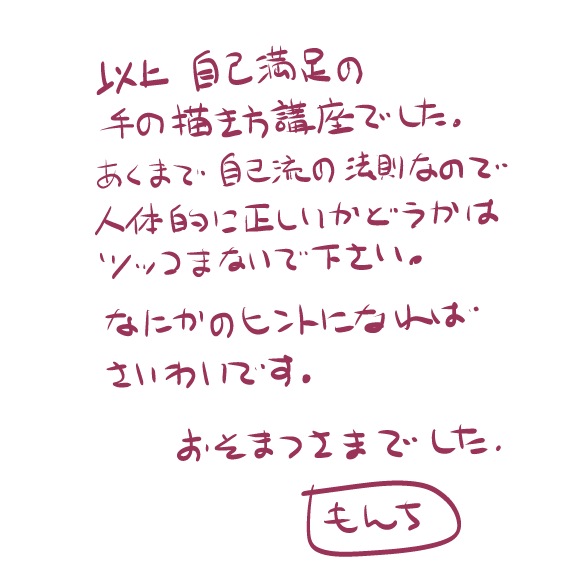 以上 自己満足の
手の描き方講座でした。
あくまで自己流の法則なので
人体的に正しいかどうかは
ツッコまないで下さい。
なにかのヒントになれば
さいわいです。
おそまつさまでした.
もんち